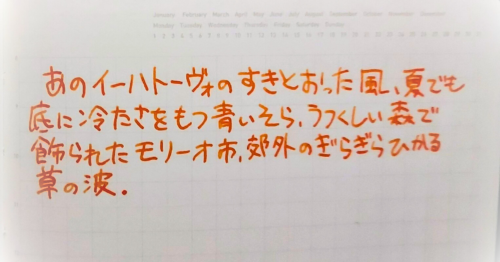 January February March April May June July August September October November December
Monday Tuesday Wednesday Thursday Friday Saturday Sunday
1 2 3 4 5 6 7 8 9 10 11 12 13 14 15 16 17 18 19 20 21 22 23 24 25 26 27 28 29 30 31
あのイーハトーヴォのすきとおった風、夏でも
底に冷たさをもつ青いそら、うつくしい森で
飾られたモリーオ市、郊外のぎらぎらひかる
草の波.